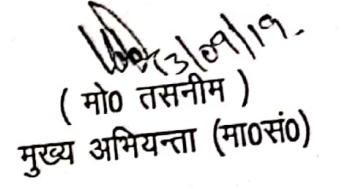 3/09/19.
( मो0 तसनीम )
मुख्य अभियन्ता (मा0सं0)